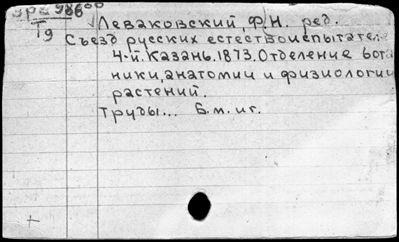 Леваковский, Ф.Н. ред.
Т9 Съезд русских естествоиспытателе
4-й. Казань. 1873. Отделение бота
ники, анатомии и физиологии
растений.
Труды... Б.м. иг.